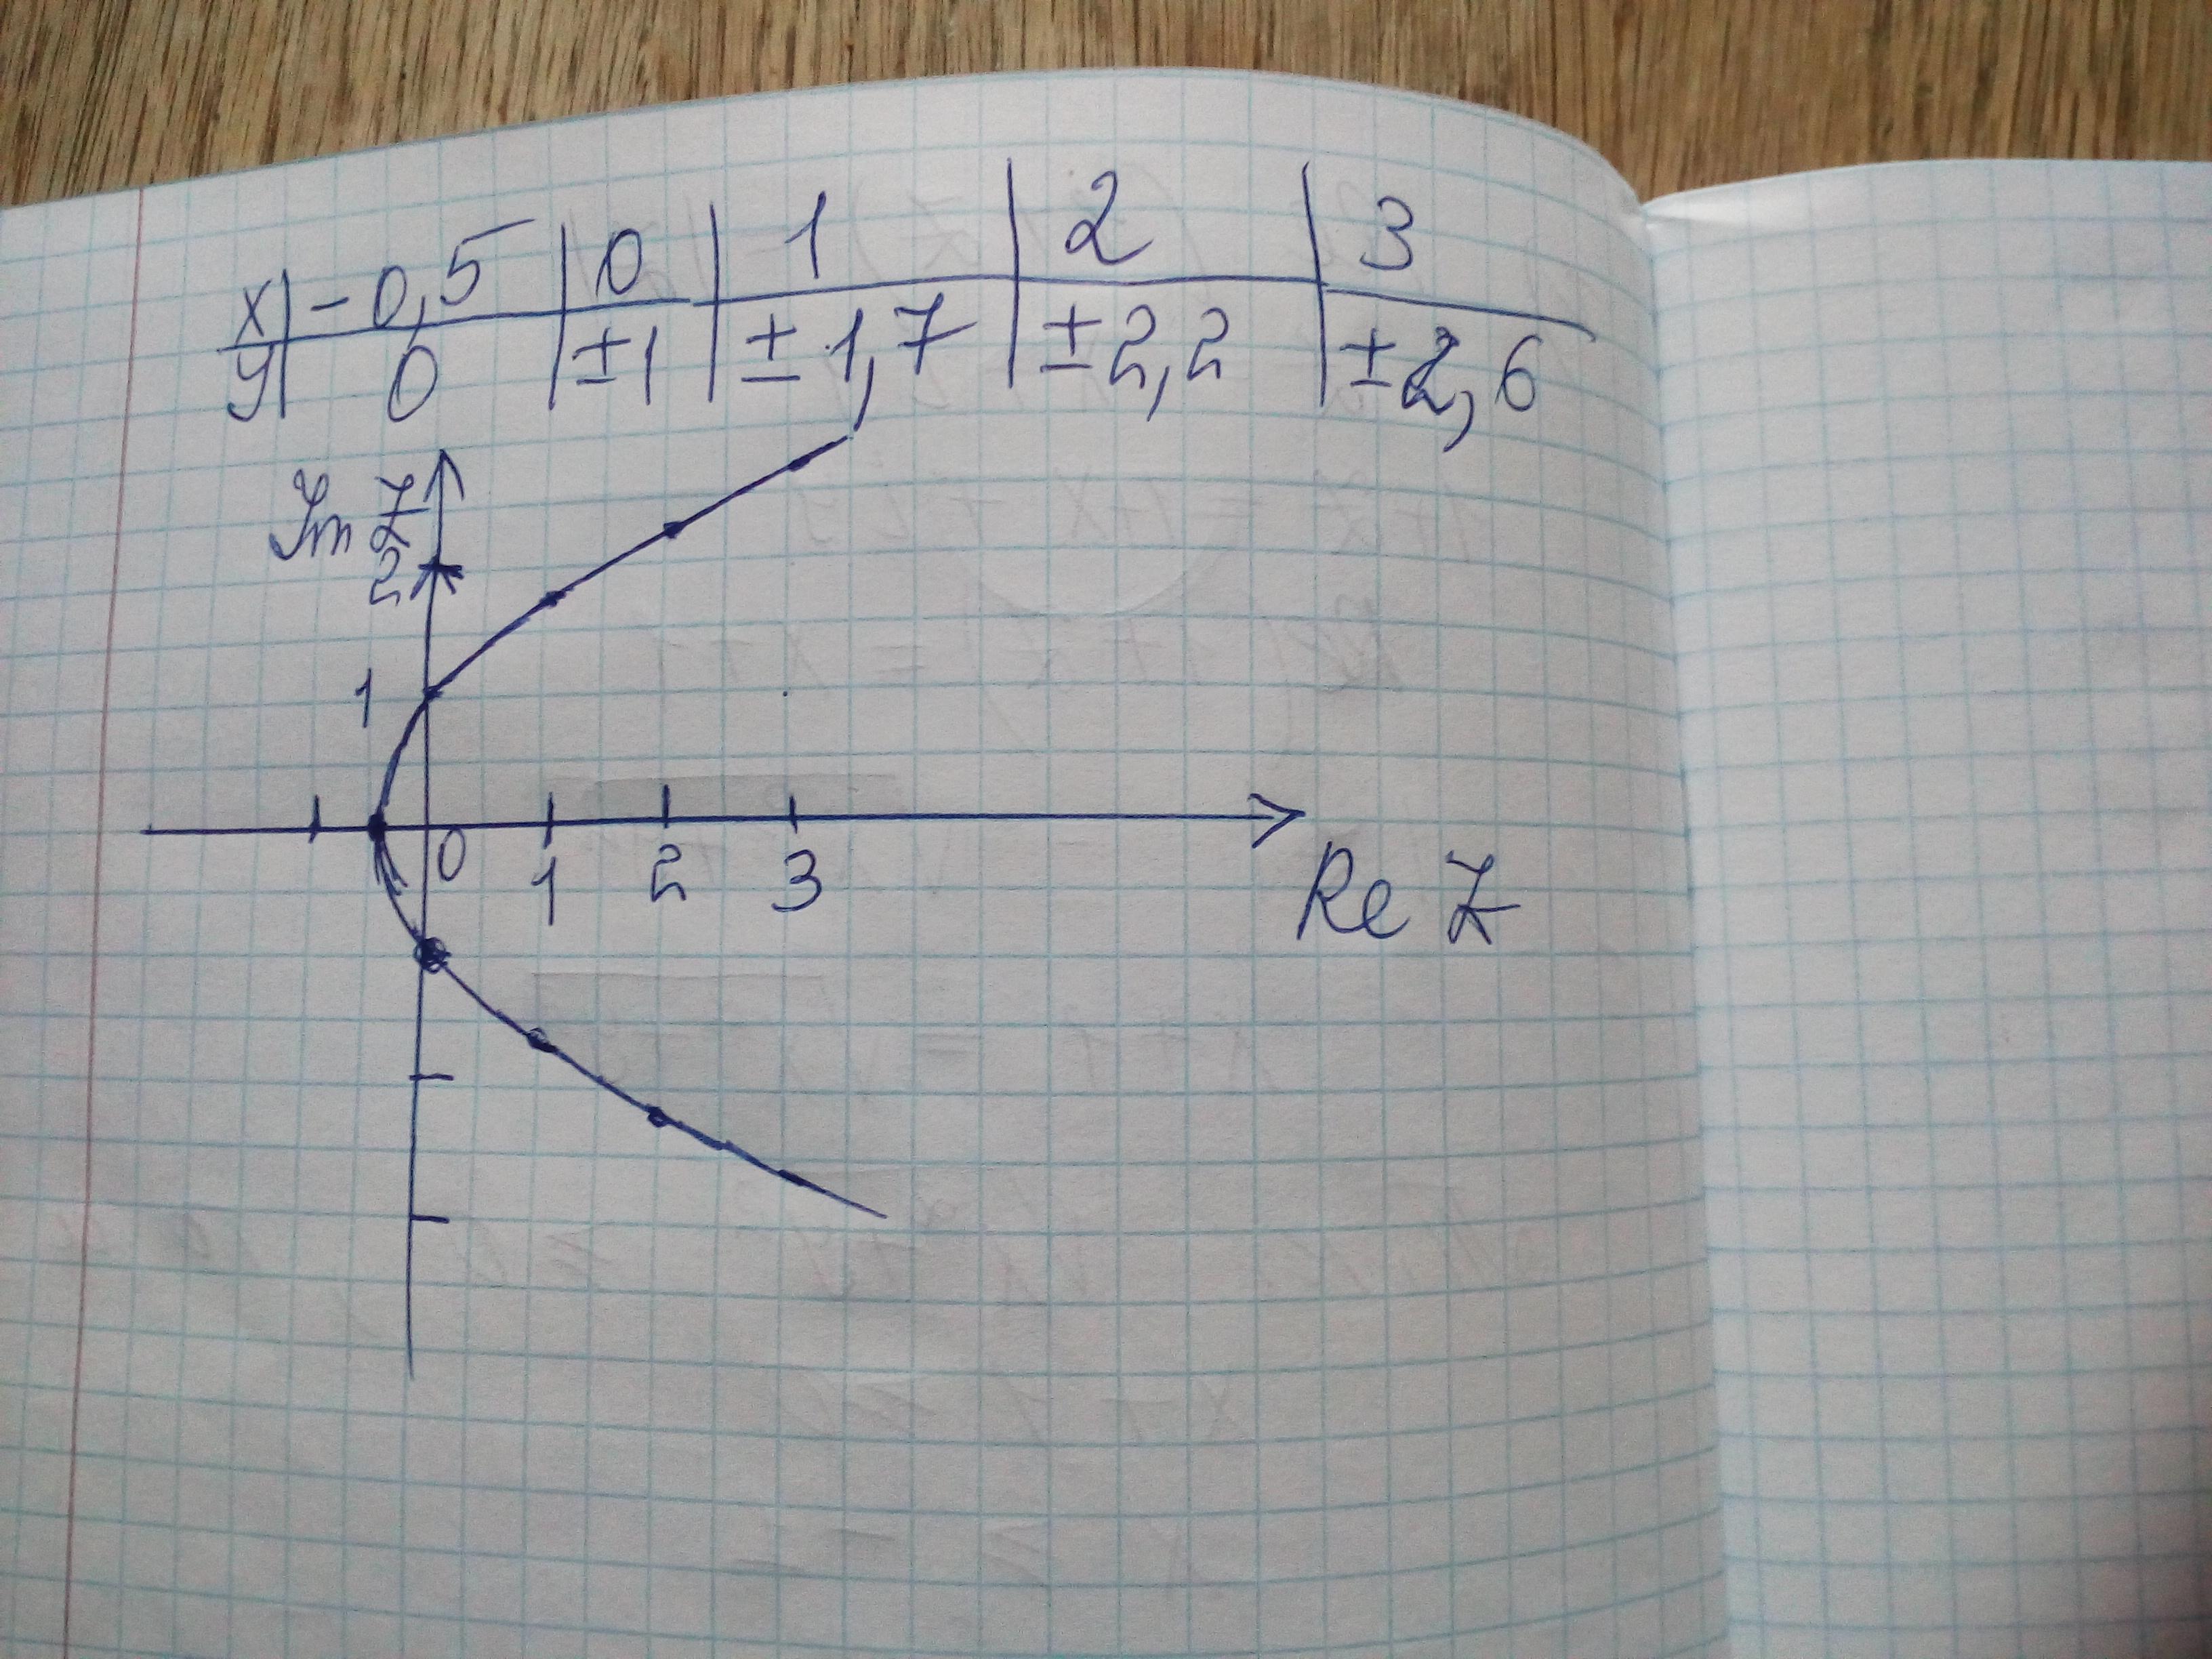 x | -0,5 | 0 | 1 | 2 | 3
y | 0 | ±1 | ±1,7 | ±2,2 | ±2,6
Im Z
2
1
0 1 2 3
Re Z